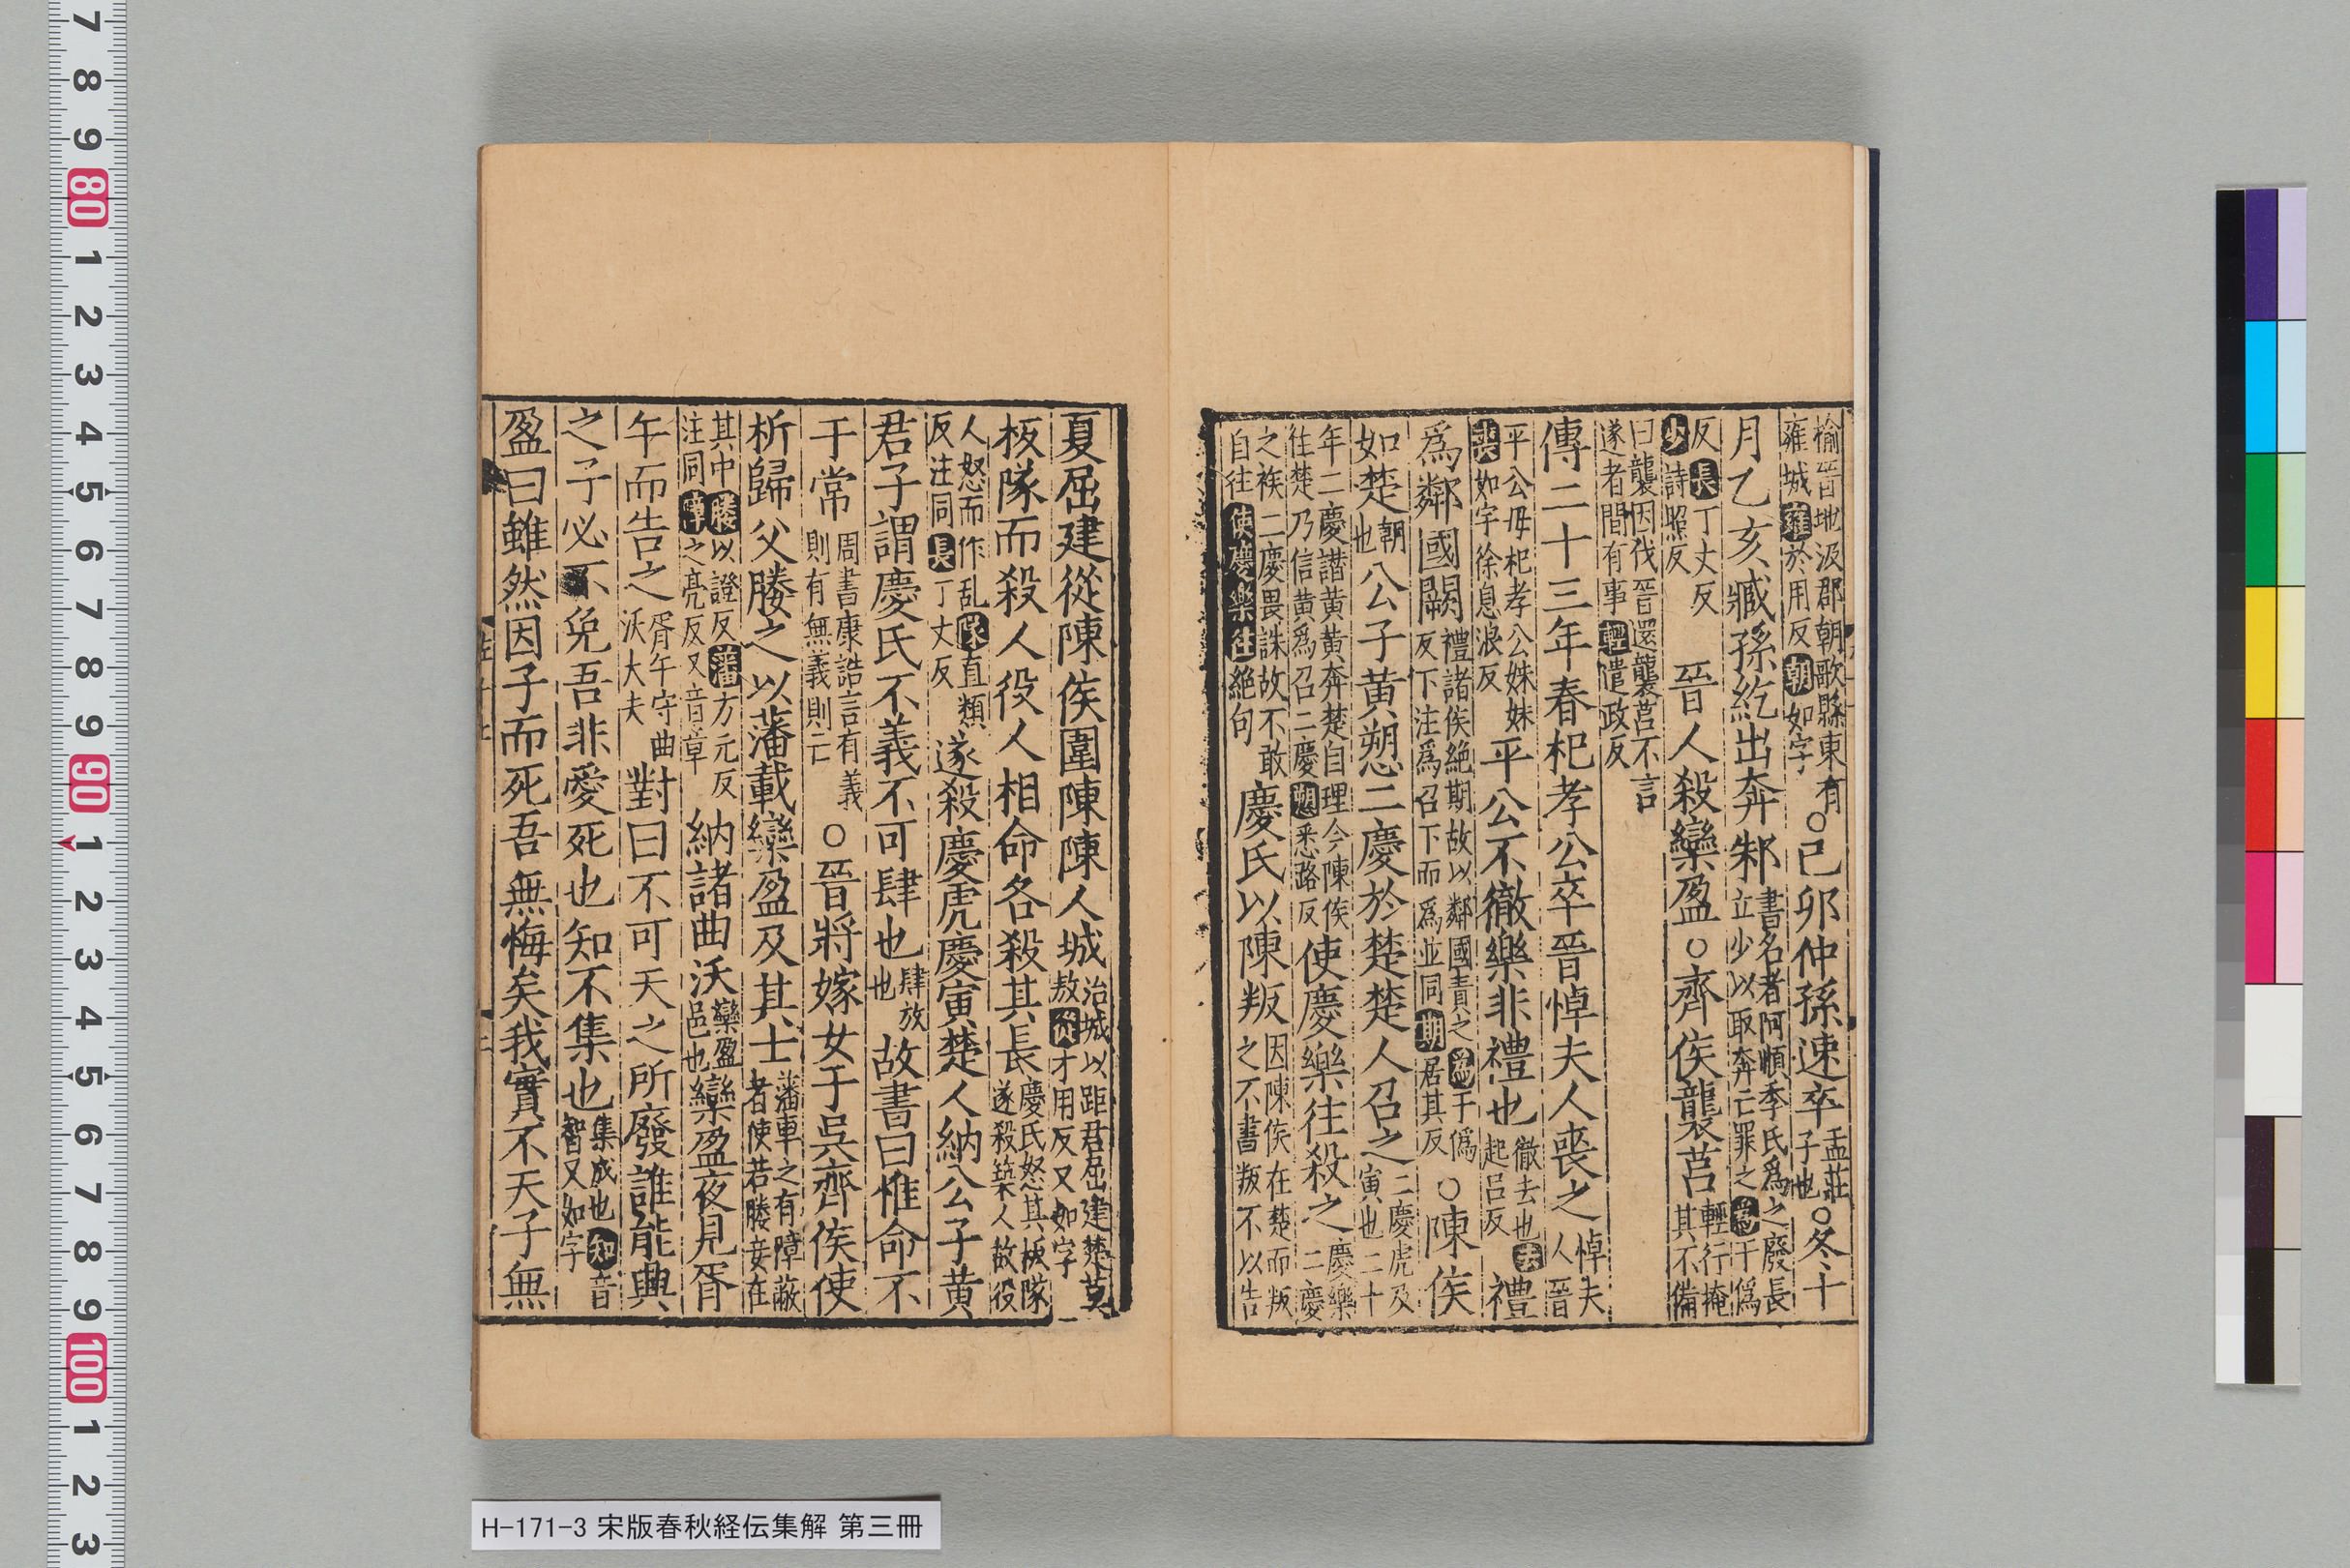 榆晉地汲郡朝歌縣東有雍城雍於用反朝如字○己卯仲孫速卒孟莊子也○冬十
月乙亥臧孫紇出奔邾書名者阿順季氏爲之廢長立少以取奔亡罪之爲于僞
反長丁丈反少詩照反晉人殺欒盈○齊侯襲莒輕行掩其不備
曰襲因伐晉還襲莒不言遂者間有事輕遣政反
傳二十三年春杞孝公卒晉悼夫人喪之悼夫人晉
平公母杞孝公姊妹喪如字徐息浪反平公不徹樂非禮也徹去也去起呂反禮
爲鄰國闕禮諸侯絕期故以鄰國責之爲于僞反下注爲召下而爲並同期居其反○陳侯
如楚朝也公子黃愬二慶於楚楚人召之二慶虎及寅也二十
年二慶譖黃黃奔楚自理今陳侯往楚乃信黃爲召二慶愬悉路反使慶樂往殺之慶樂二慶
之族二慶畏誅故不敢自往使慶樂往絕句慶氏以陳叛因陳侯在楚而叛之不書叛不以告
夏屈建從陳侯圍陳陳人城治城以距君屈建楚莫敖從才用反又如字
板隊而殺人役人相命各殺其長慶氏怒其板隊遂殺築人故役
人怒而作乱隊直類反注同長丁丈反遂殺慶虎慶寅楚人納公子黃
君子謂慶氏不義不可肆也肆放也故書曰惟命不
于常周書康誥言有義則有無義則亡○晉將嫁女于吳齊侯使
析歸父媵之以藩載欒盈及其士藩車之有障蔽者使若媵妾在
其中媵以證反藩方元反注同障之亮反又音章納諸曲沃欒盈邑也欒盈夜見胥
午而告之胥午守曲沃大夫對曰不可天之所廢誰能興
之子必不免吾非愛死也知不集也集成也知音智又如字
盈曰雖然因子而死吾無悔矣我實不天子無
H-171-3 宋版春秋経伝集解 第三冊
7
8
9
80
1
2
3
4
5
6
7
8
9
90
1
2
3
4
5
6
7
8
9
100
1
2
3